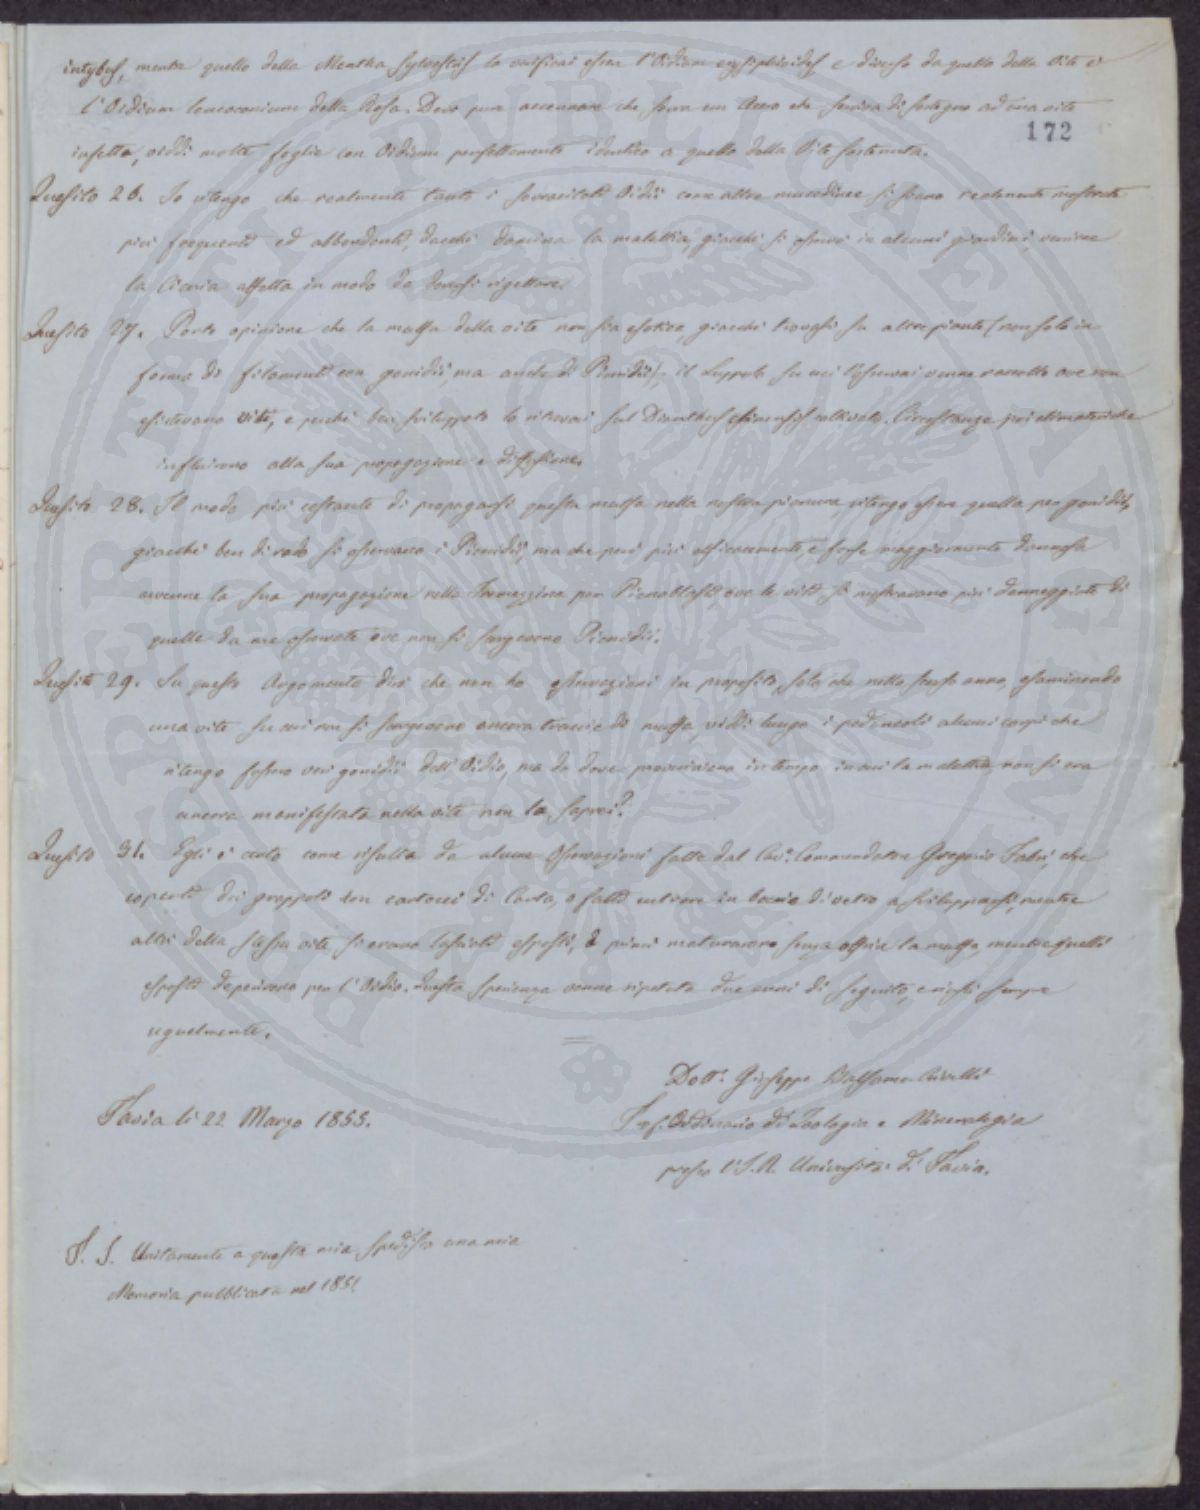 intybus, mentre quello della Mentha Sylvestris lo verificai esser l'Oidium erysiphoides e diverso da quello della Vite è
l'Oidium leucoconium della Rosa. Devo pure accennare che sovra un Acero che serviva di sostegno ad una vite
172
infetta, viddi molte foglie con Oidium perfettamente identico a quello della Vite sostenuta.
Quesito 26. Io ritengo che realmente tanto i sovracitati Oidii come altre mucedinee si siano realmente mostrate
più frequenti ed abbondanti, dacchè domina la malattia, giacchè si osservò in alcuni giardini, venire
la Cicoria affetta in modo da doversi rigettare.
Quesito 27. Porto opinione che la muffa della vite non sia esotica, giacchè trovasi su altre piante (non solo in
forma di filamenti con gonidii, ma anche di Picnidii), il Luppolo su cui l'osservai venne raccolto ove non
esistevano viti, e perchè ben sviluppato lo ritrovai sul Dianthus chinensis coltivato. Circostanze poi atmosferiche
influirono alla sua propagazione e diffusione.
Quesito 28. Il modo più costante di propagarsi questa muffa nella nostra pianura, ritengo essere quello per gonidii,
giacchè ben di rado si osservano i Picnidii, ma che però più efficacemente, e forse maggiormente dannosa
avvenne la sua propagazione nella Tremezzina per Picnoblasti, ove le viti si mostravano più danneggiate di
quelle da me osservate ove non si scorgevano Picnidii.
Quesito 29. Su questo Argomento dirò che non ho osservazioni in proposito, solo che nello scorso anno, esaminando
una vite su cui non si scorgevano ancora traccie di muffa viddi lungo i peduncoli alcuni corpi che
ritengo fossero veri gonidii dell'Oidio, ma da dove provenissero in tempo in cui la malattia non si era
ancora manifestata nella vite non lo saprei?
Quesito 31. Egli è certo come risulta da alcune Osservazioni fatte dal Cav. Commendatore Gregorio Fabri, che
coperti dei grappoli con cartocci di Carta, o fatti entrare in boccie di vetro a svilupparsi, mentre
altri della stessa vite, si erano lasciati esposti, i primi maturarono senza offrire la muffa, mentre quelli
esposti deperirono per l'Oidio. Questa sperienza venne ripetuta due anni di seguito, e riescì sempre
ugualmente.
Dott. Giuseppe Balsamo Crivelli
Pavia li 22 Marzo 1855.
Prof. Ordinario di Zoologia e Mineralogia
presso l'I. R. Università di Pavia.
P. S. Unitamente a questa mia spedisco una mia
Memoria pubblicata nel 1851